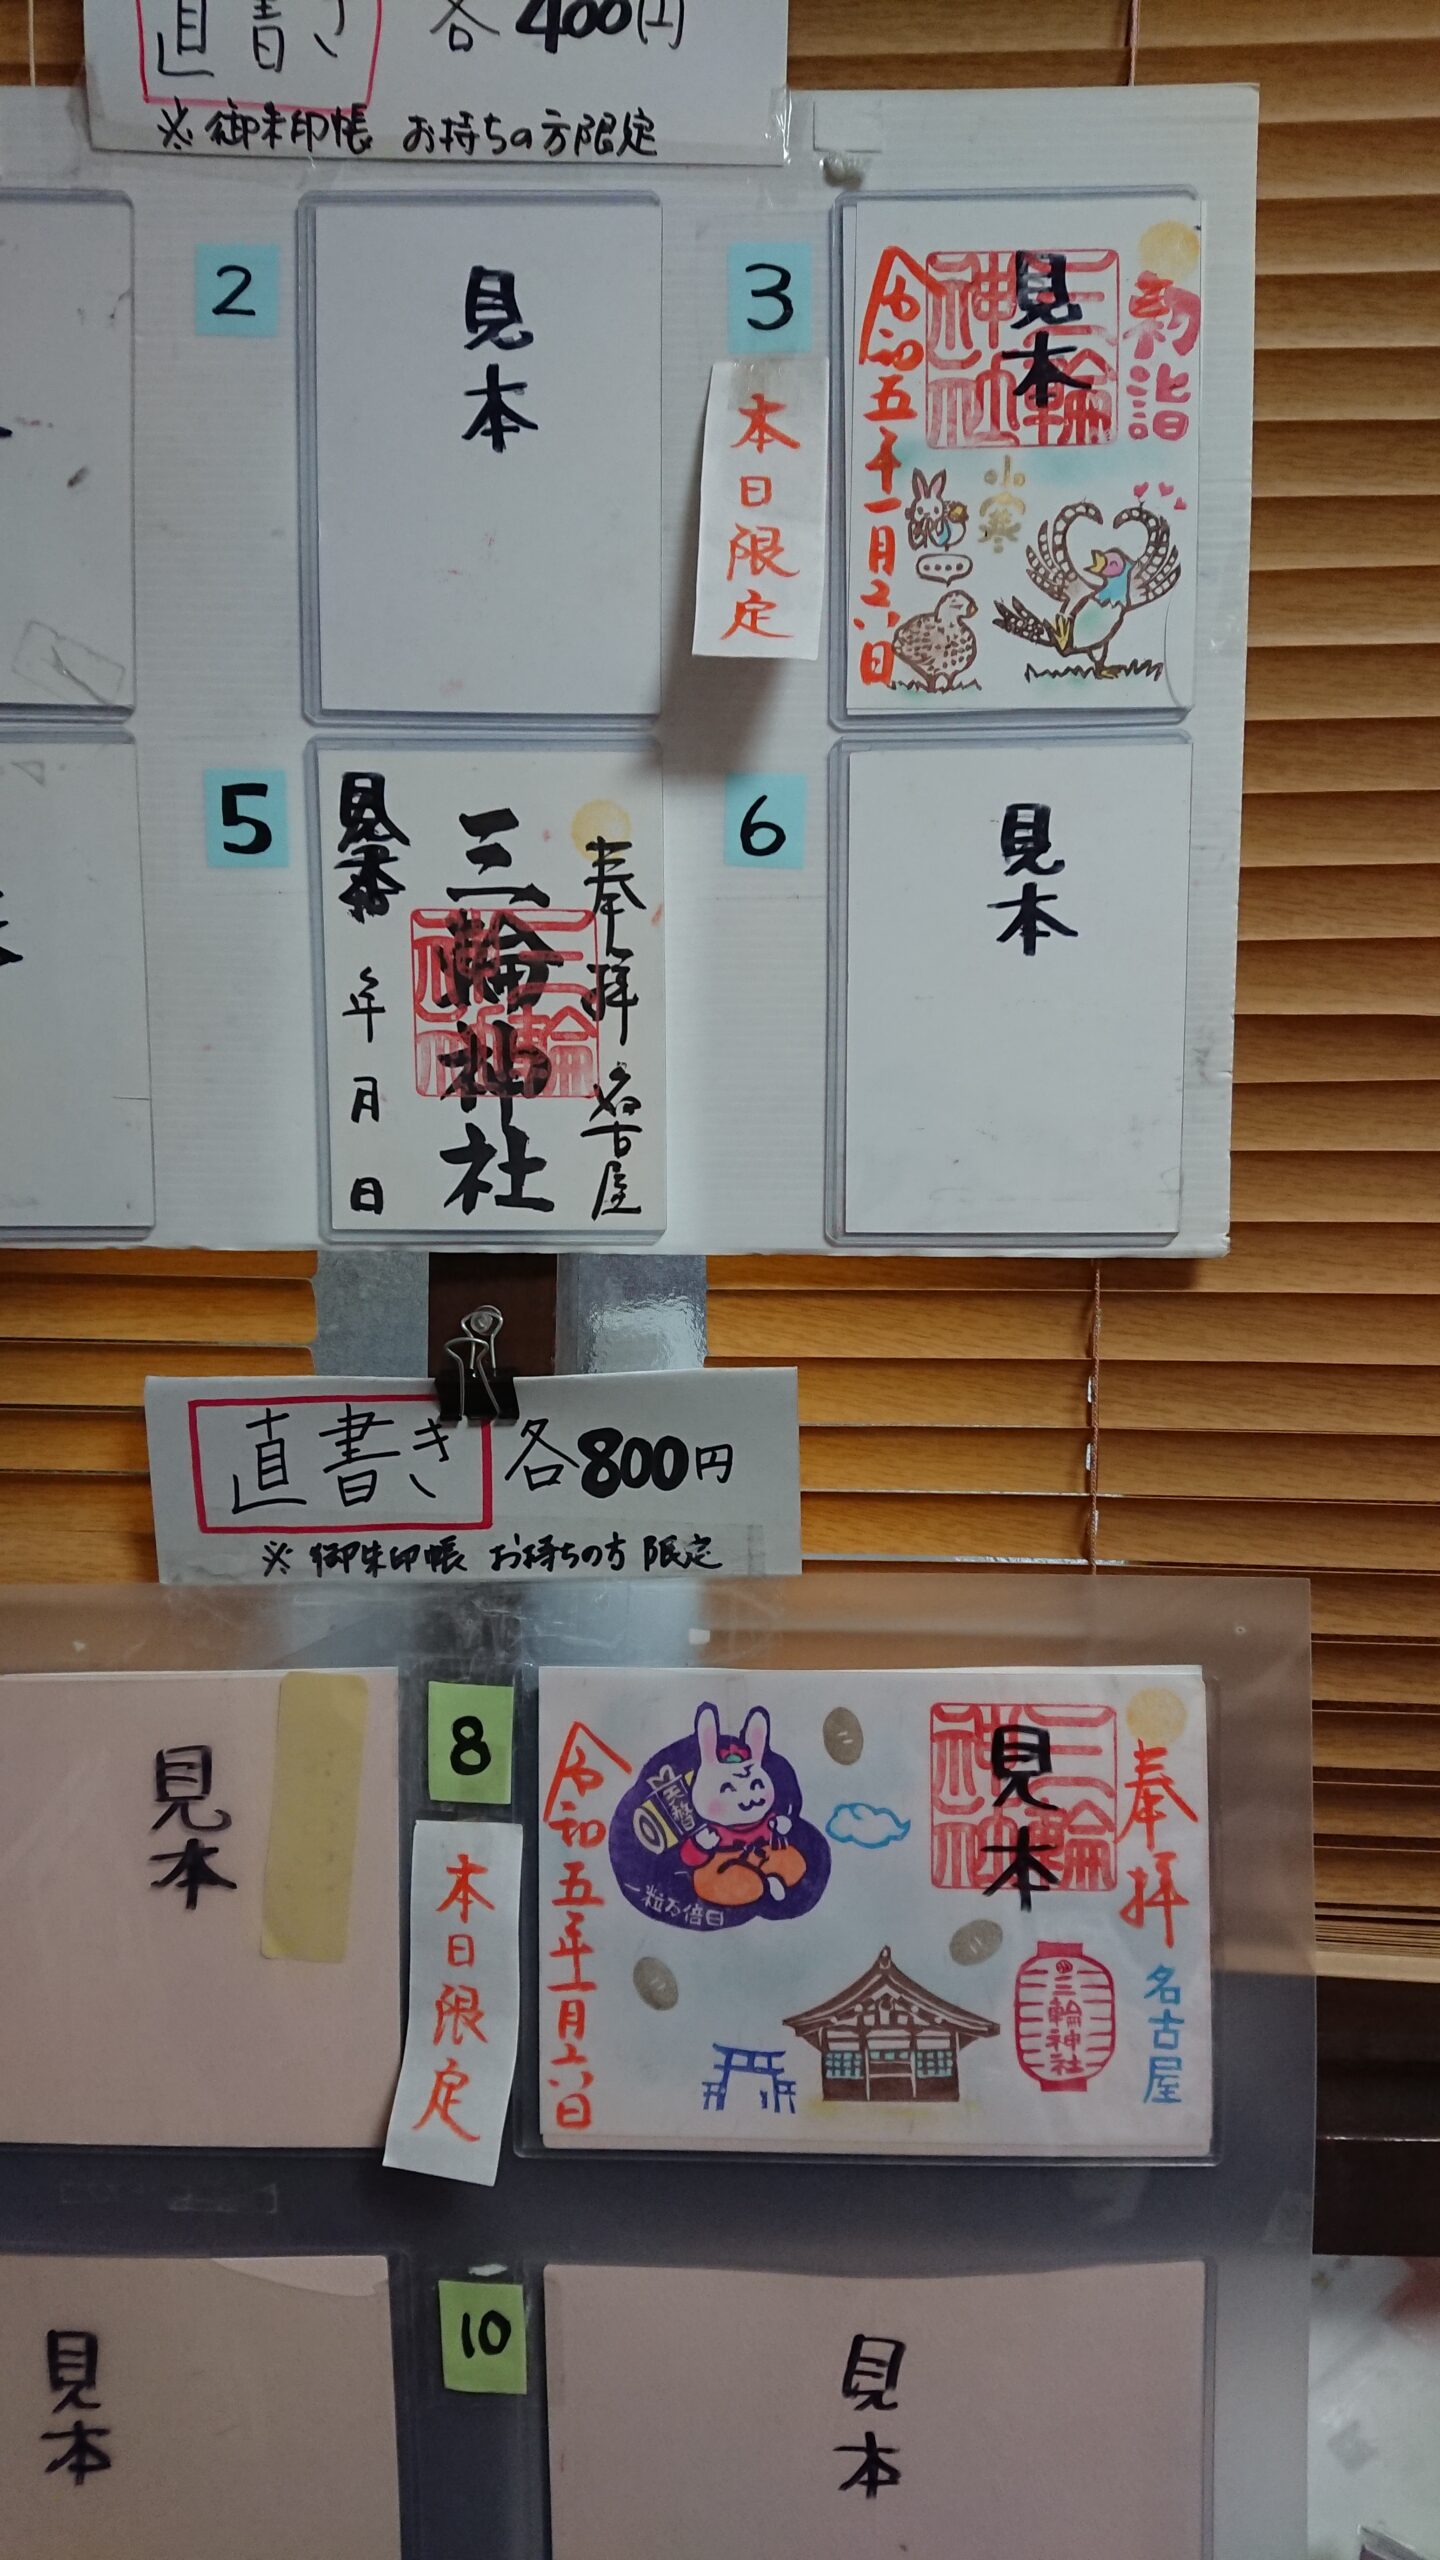 直書き 各400円
※御朱印帳 お持ちの方限定
2
見本
3
本日限定
初詣
三輪神社
見本
小寒
令和五年一月六日
5
奉拝 名古屋
三輪神社
三輪神社
見本
年 月 日
6
見本
直書き 各800円
※御朱印帳 お持ちの方限定
見本
8
本日限定
奉拝
名古屋
三輪神社
見本
三輪神社
一粒万倍日
令和五年一月六日
見本
10
見本